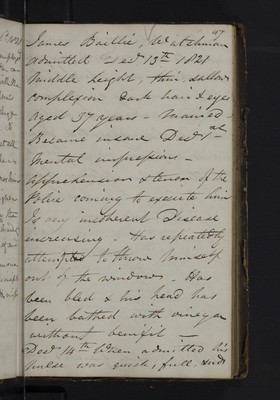 47
James Baillie, Watchman
admitted Decr 13th 1821
Middle height, thin, sallow
complexion dark hair & eyes
aged 37 years - married -
Became insane Decr 1st
Mental impressions -
apprehension & terror of the
Police coming to execute him
Is very incoherent Disease
increasing - Has repeatedly
attempted to throw himself
out of the windows - Has
been bled & his head has
been bathed with vinegar
without benefit -
Decr 14th When admitted his
pulse was quick, full and